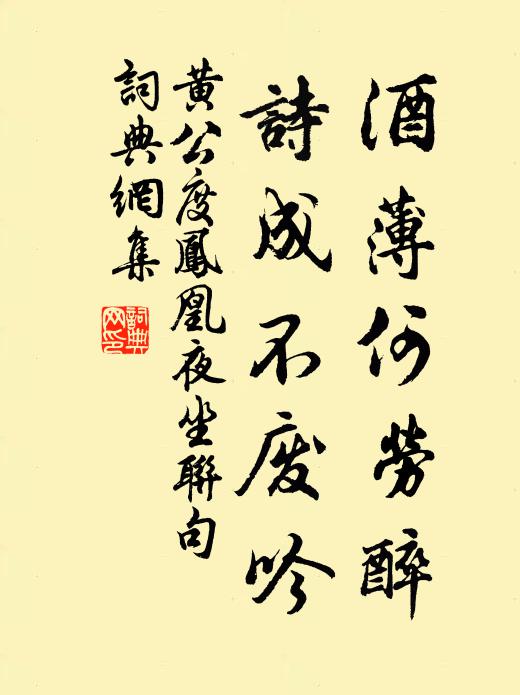 酒薄何勞醉
詩成不废吟
黃公度鳳凰夜坐聯句
詞典網集
詞典网印